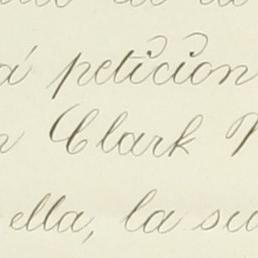 á petición
Clark
ella, la su